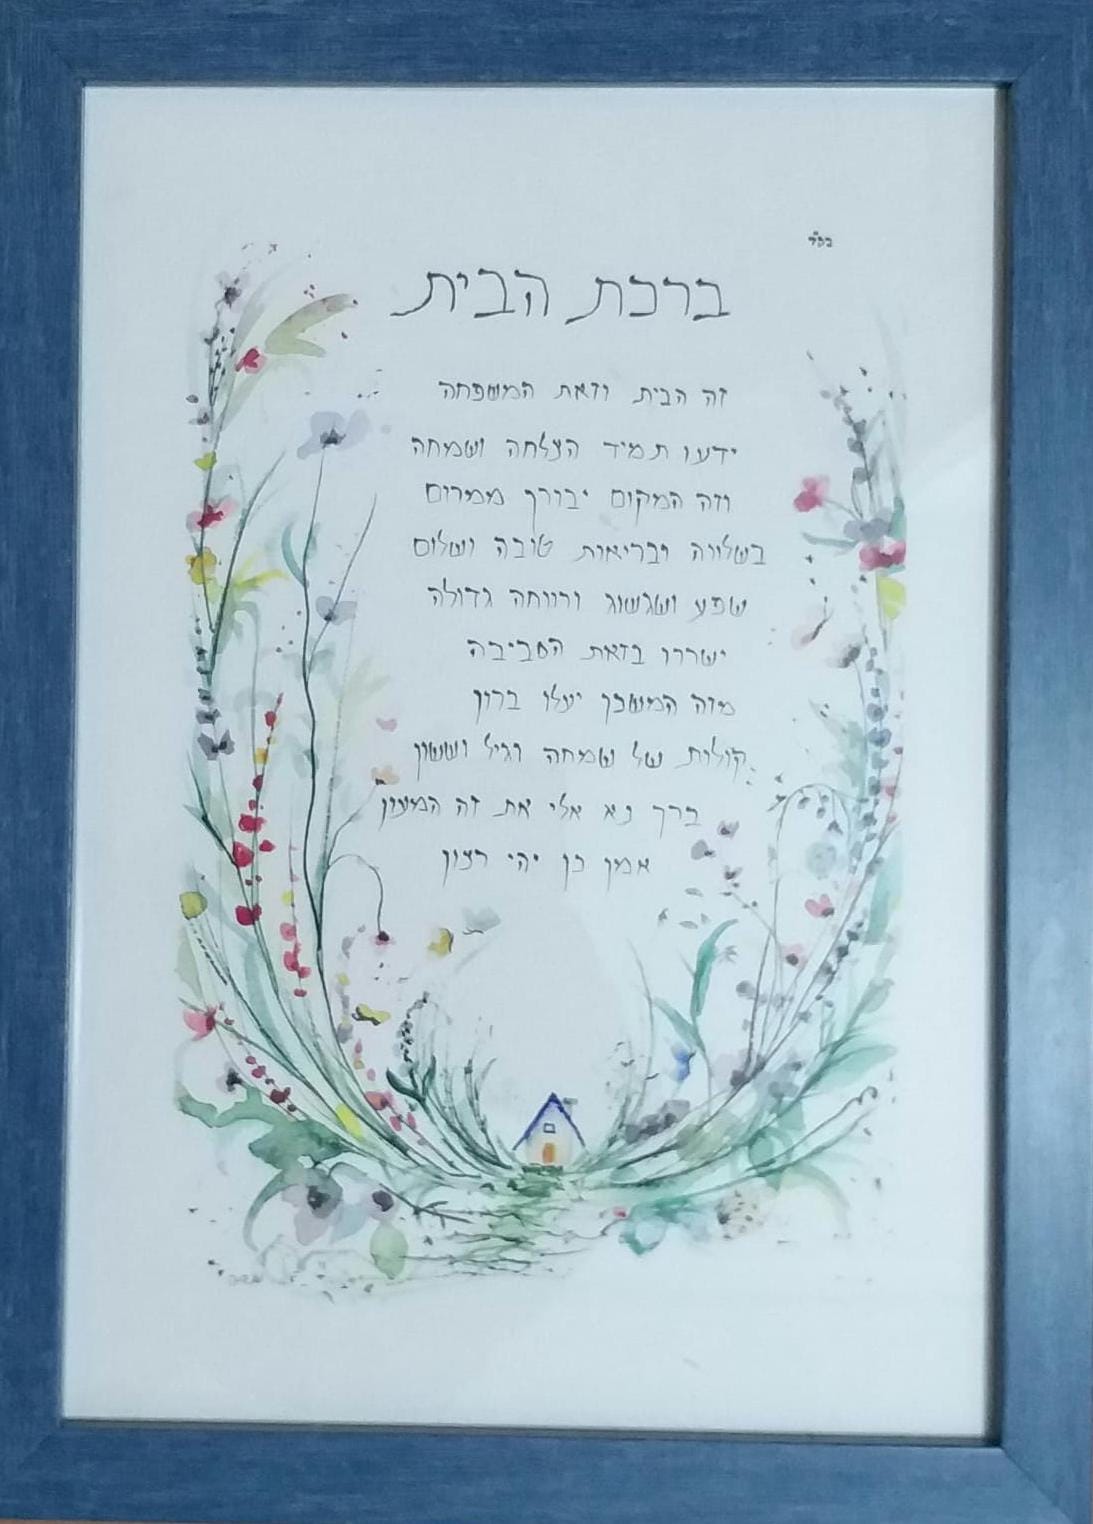 בס"ד
ברכת הבית
זה הבית וזאת המשפחה
ידעו תמיד הצלחה ושמחה
וזה המקום יבורך ממרום
בשלווה ובריאות טובה ושלום
שפע ושגשוג ורווחה גדולה
ישררו בזאת הסביבה
מזה המשכן יעלו ברון
קולות של שמחה וגיל וששון
ברך נא אלי את זה המעון
אמן כן יהי רצון